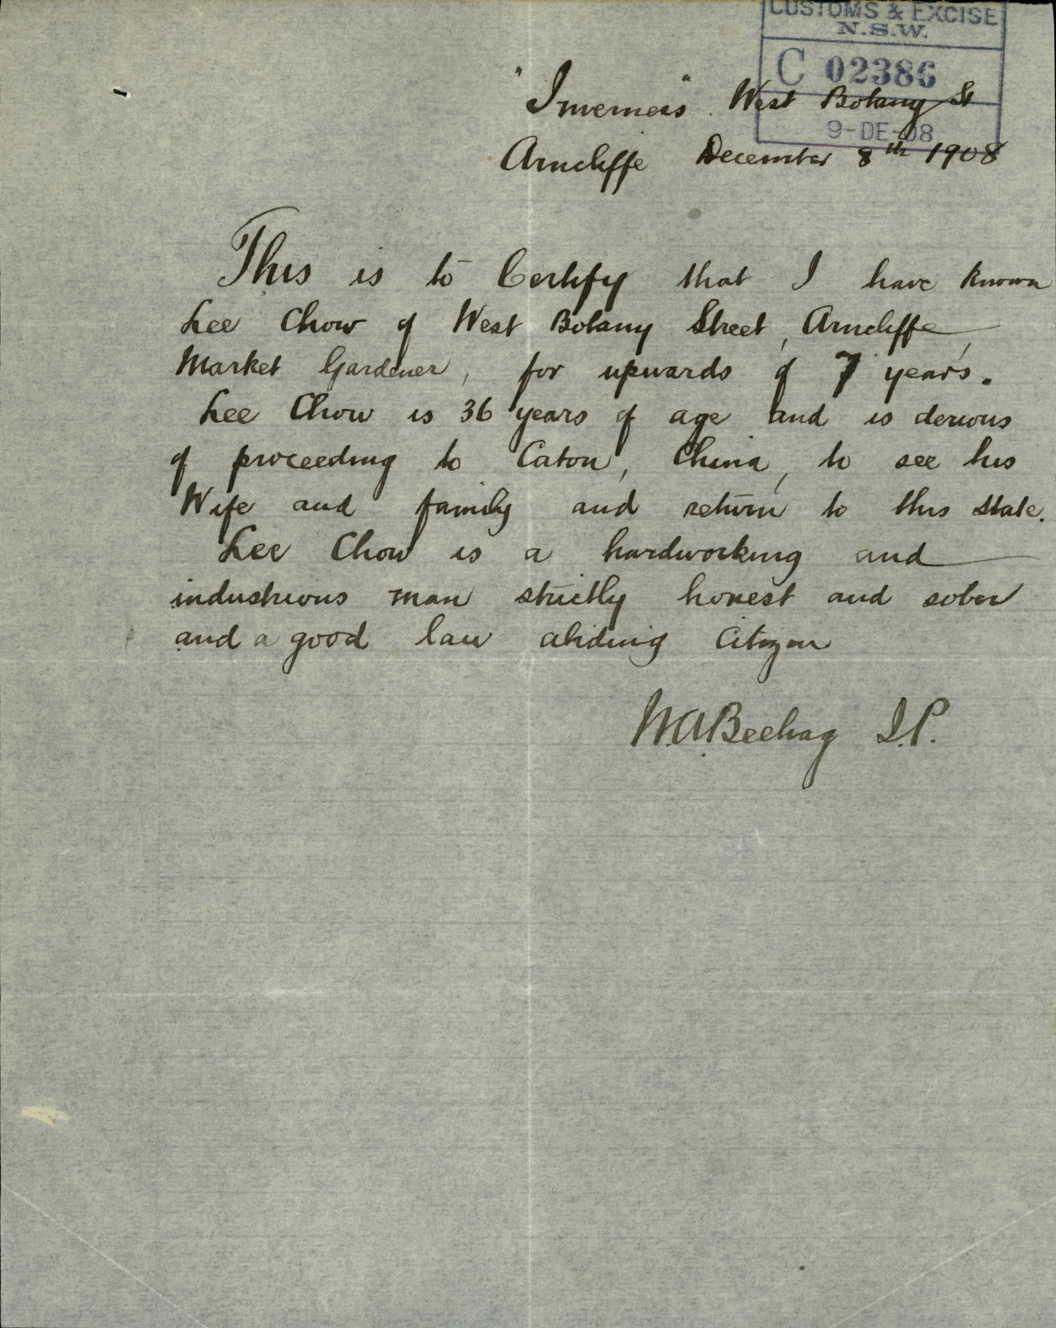 CUSTOMS & EXCISE
N.S.W.
C 02386
9-DE-08
"Inverness" West Botany St
Arncliffe December 8th 1908
This is to Certify that I have known
Lee Chow of West Botany Street, Arncliffe,
Market Gardener, for upwards of 7 years.
Lee Chow is 36 years of age and is derious
of proceeding to Caton, China, to see his
Wife and family and return to this State.
Lee Chow is a hardworking and
industrious man strictly honest and sober
and a good law abiding Citizen
W.A. Beehag J.P.